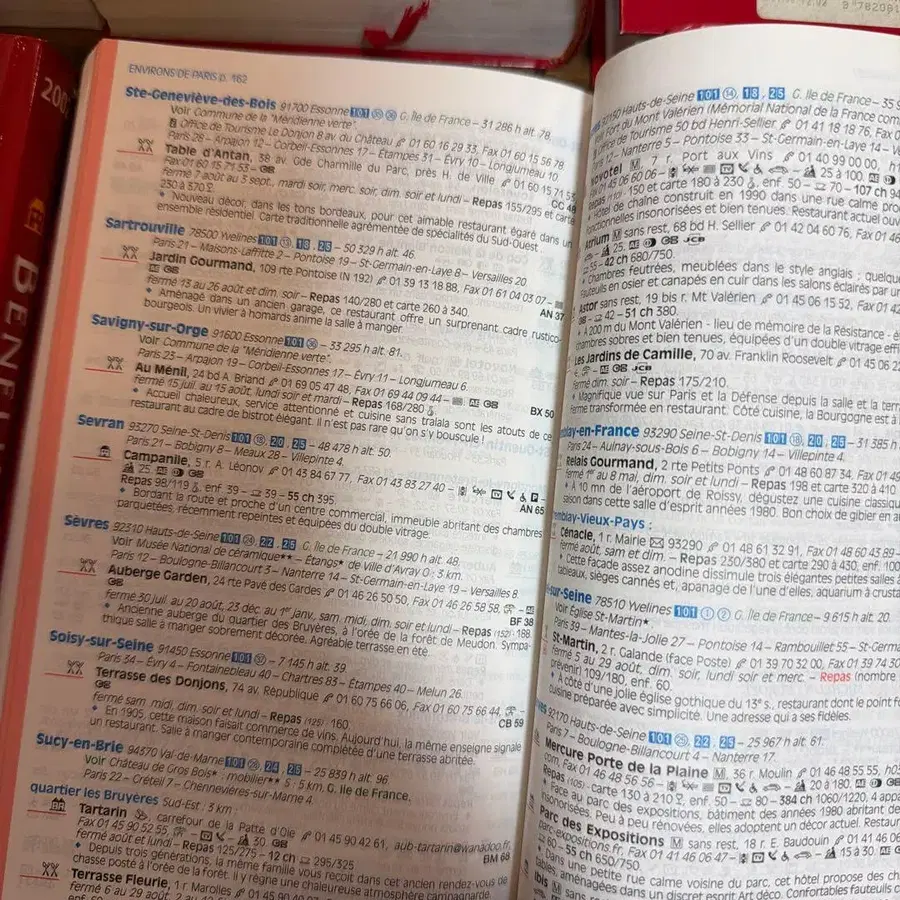 200
BENEL
9 782061
ENVIRONS DE PARIS p. 162
Ste-Geneviève-des-Bois 91700 Essonne 101 G. Ile de France – 31 286 h alt. 78.
Voir Commune de la "Méridienne verte".
Office de Tourisme Le Donjon 8 av. du Château 01 60 16 29 33, Fax 01 60 15 56 78
Paris 28 – Arpajon 12 – Corbeil-Essonnes 17 – Étampes 31 – Évry 10 – Longjumeau 10.
Table d'Antan, 38 av. Gde Charmille du Parc, près H. de Ville 01 60 15 71 53
Fax 01 60 15 71 53 – GB CC 46
fermé 7 août au 3 sept., mardi soir, merc. soir, dim. soir et lundi – Repas 155/295 et carte
230 à 370
Nouveau décor, dans les tons bordeaux, pour cet aimable restaurant égaré dans un
ensemble résidentiel. Carte traditionnelle agrémentée de spécialités du Sud-Ouest.
Sartrouville 78500 Yvelines 101 13, 18, 25 – 50 329 h alt. 46.
Paris 21 – Maisons-Laffitte 2 – Pontoise 19 – St-Germain-en-Laye 8 – Versailles 20
Jardin Gourmand, 109 rte Pontoise (N 192) 01 39 13 18 88, Fax 01 61 04 03 07 –
AE GB AN 37
fermé 13 au 26 août et dim. soir – Repas 140/280 et carte 260 à 340.
Aménagé dans un ancien garage, ce restaurant offre un surprenant cadre rustico-
bourgeois. Un vivier à homards anime la salle à manger.
Savigny-sur-Orge 91600 Essonne 101 – 33 295 h alt. 81.
Voir Commune de la "Méridienne verte".
Paris 23 – Arpajon 19 – Corbeil-Essonnes 17 – Évry 11 – Longjumeau 6.
Au Ménil, 24 bd A. Briand 01 69 05 47 48, Fax 01 69 44 09 44 – AE GB BX 50
fermé 15 juil. au 15 août, lundi soir et mardi – Repas 168/280
Accueil chaleureux, service attentionné et cuisine sans tralala sont les atouts de ce
restaurant au cadre de bistrot élégant. Il n'est pas rare qu'on s'y bouscule !
Sevran 93270 Seine-St-Denis 101 18, 20, 25 – 48 478 h alt. 50.
Paris 21 – Bobigny 8 – Meaux 28 – Villepinte 4.
Campanile, 5 r. A. Léonov 01 43 84 67 77, Fax 01 43 83 27 40 –
25. AE GB AN 65
Repas 98/119, enf. 39 – 39 – 55 ch 395.
Bordant la route et proche d'un centre commercial, immeuble abritant des chambres
parquetées, récemment repeintes et équipées du double vitrage.
Sèvres 92310 Hauts-de-Seine 101 24, 22, 25 G. Ile de France – 21 990 h alt. 48.
Voir Musée National de céramique★★ – Étangs★ de Ville d'Avray O : 3 km.
Paris 12 – Boulogne-Billancourt 3 – Nanterre 14 – St-Germain-en-Laye 19 – Versailles 8.
Auberge Garden, 24 rte Pavé des Gardes 01 46 26 50 50, Fax 01 46 26 58 58, – AE
GB BF 38
fermé 30 juil. au 20 août, 23 déc. au 1er janv., sam. midi, dim. soir et lundi – Repas (152) - 188.
Ancienne auberge du quartier des Bruyères, à l'orée de la forêt de Meudon. Sympa-
thique salle à manger sobrement décorée. Agréable terrasse en été.
Soisy-sur-Seine 91450 Essonne 101 – 7 145 h alt. 39
Paris 34 – Évry 4 – Fontainebleau 40 – Chartres 83 – Étampes 40 – Melun 26.
Terrasse des Donjons, 74 av. République 01 60 75 66 06, Fax 01 60 75 66 44, –
GB CB 59
fermé sam. midi, dim. soir et lundi – Repas (125) - 160.
En 1905, cette maison faisait commerce de vins. Aujourd'hui, la même enseigne signale
un restaurant. Salle à manger contemporaine complétée d'une terrasse abritée.
Sucy-en-Brie 94370 Val-de-Marne 101 28, 24, 25 – 25 839 h alt. 96
Voir Château de Gros Bois★ : mobilier★★ S : 5 km, G. Ile de France.
Paris 22 – Créteil 7 – Chennevières-sur-Marne 4.
quartier les Bruyères Sud-Est : 3 km :
Tartarin, carrefour de la Patte d'Oie 01 45 90 42 61, aub-tartarin@wanadoo.fr,
Fax 01 45 90 52 55, – TV 30. GB BM 68
fermé août et lundi – Repas 125/275 – 12 ch 295/325
Depuis trois générations, la même famille vous reçoit dans cet ancien rendez-vous de
chasse posté à l'orée de la forêt. Il y règne une chaleureuse atmosphère campagnarde.
Terrasse Fleurie, 1 r. Marolles
fermé 6 au 29 août,
92150 Hauts-de-Seine 101 14, 18, 25 G. Ile de France – 35 9
Fort du Mont Valérien (Mémorial National de la France com
Office de Tourisme 50 bd Henri-Sellier 01 41 18 18 76, Fax 0
12 – Nanterre 5 – Pontoise 33 – St-Germain-en-Laye 14 – Ve
Novotel M, 7 r. Port aux Vins 01 40 99 00 00, h
Fax 01 45 06 60 06 – 25 à 100. AE
150 et carte 180 à 230, enf. 50 – 70 – 107 ch 94
Hôtel de chaîne construit en 1990 dans une rue calme pro
fonctionnelles insonorisées et bien tenues. Restaurant actuel ouv
Atrium M sans rest, 68 bd H. Sellier 01 42 04 60 76, Fax 01 46
25. AE GB JCB
55 – 42 ch 680/750.
Chambres feutrées, meublées dans le style anglais ; quelque
fauteuils en osier et canapés en cuir dans les salons éclairés par un
Astor sans rest, 19 bis r. Mt Valérien 01 45 06 15 52, Fax 01 4
GB – 42 – 51 ch 380.
A 200 m du Mont Valérien - lieu de mémoire de la Résistance - é
chambres sobres et bien tenues, équipées d'un double vitrage effi
Les Jardins de Camille, 70 av. Franklin Roosevelt 01 45 06 22
– AE GB JCB
fermé dim. soir – Repas 175/210.
Magnifique vue sur Paris et la Défense depuis la salle et la terr
ferme transformée en restaurant. Côté cuisine, la Bourgogne est à
mblay-en-France 93290 Seine-St-Denis 101 18, 20, 25 – 31 385 h
Paris 24 – Aulnay-sous-Bois 6 – Bobigny 14 – Villepinte 4.
Relais Gourmand, 2 rte Petits Ponts 01 48 60 87 34, Fax 01 49
fermé 1er au 8 mai, dim. soir et lundi – Repas 198 et carte 320 à 410
A 10 mn de l'aéroport de Roissy, dégustez une cuisine classiqu
saison dans cette salle d'esprit années 1980. Bon choix de gibier en au
mblay-Vieux-Pays :
Cénacle, 1 r. Mairie 93290 01 48 61 32 91, Fax 01 48 60 43 89 –
fermé août, sam. et dim. – Repas 230/380 et carte 290 à 430, enf. 100
Cette façade assez anodine dissimule trois élégantes petites salles à
tableaux, sièges cannés et, apanage de l'une d'elles, aquarium à crusta
-sur-Seine 78510 Yvelines 101 1 2 G. Ile de France – 9 615 h alt. 20.
Voir Église St-Martin★
Paris 39 – Mantes-la-Jolie 27 – Pontoise 14 – Rambouillet 55 – St-Germa
St-Martin, 2 r. Galande (face Poste) 01 39 70 32 00, Fax 01 39 74 30
fermé 5 au 29 août, dim. soir, lundi soir et merc. – Repas (nombre
prévenir) 109/180, enf. 60.
À côté d'une jolie église gothique du 13e s., restaurant dont le point f
cuisine préparée avec simplicité. Une adresse qui a ses fidèles.
92170 Hauts-de-Seine 101 25, 22, 25 – 25 967 h alt. 61.
Paris 7 – Boulogne-Billancourt 4 – Nanterre 17.
Mercure Porte de la Plaine M, 36 r. Moulin 01 46 48 55 55, h03
om, Fax 01 46 48 56 56 – 20 à 180. AE GB
Repas (105) - carte 130 à 210, enf. 50 – 80 – 384 ch 1060/1220, 4 appa
Face au parc des expositions, bâtiment des années 1980 abritant de
insonorisées. Peu à peu rénovées, elles adoptent un décor actuel. Restaur
Parc des Expositions M sans rest, 18 r. E. Baudouin 01 41 46 06
parc-expositions.fr, Fax 01 41 46 06 47 – 15 à 30. AE
– 55 ch 650/750
Dans une petite rue calme voisine du parc, cet hôtel propose des ch
tables, aménagées dans un discret esprit Art déco. Confortables fauteuils c
Ibis M sans